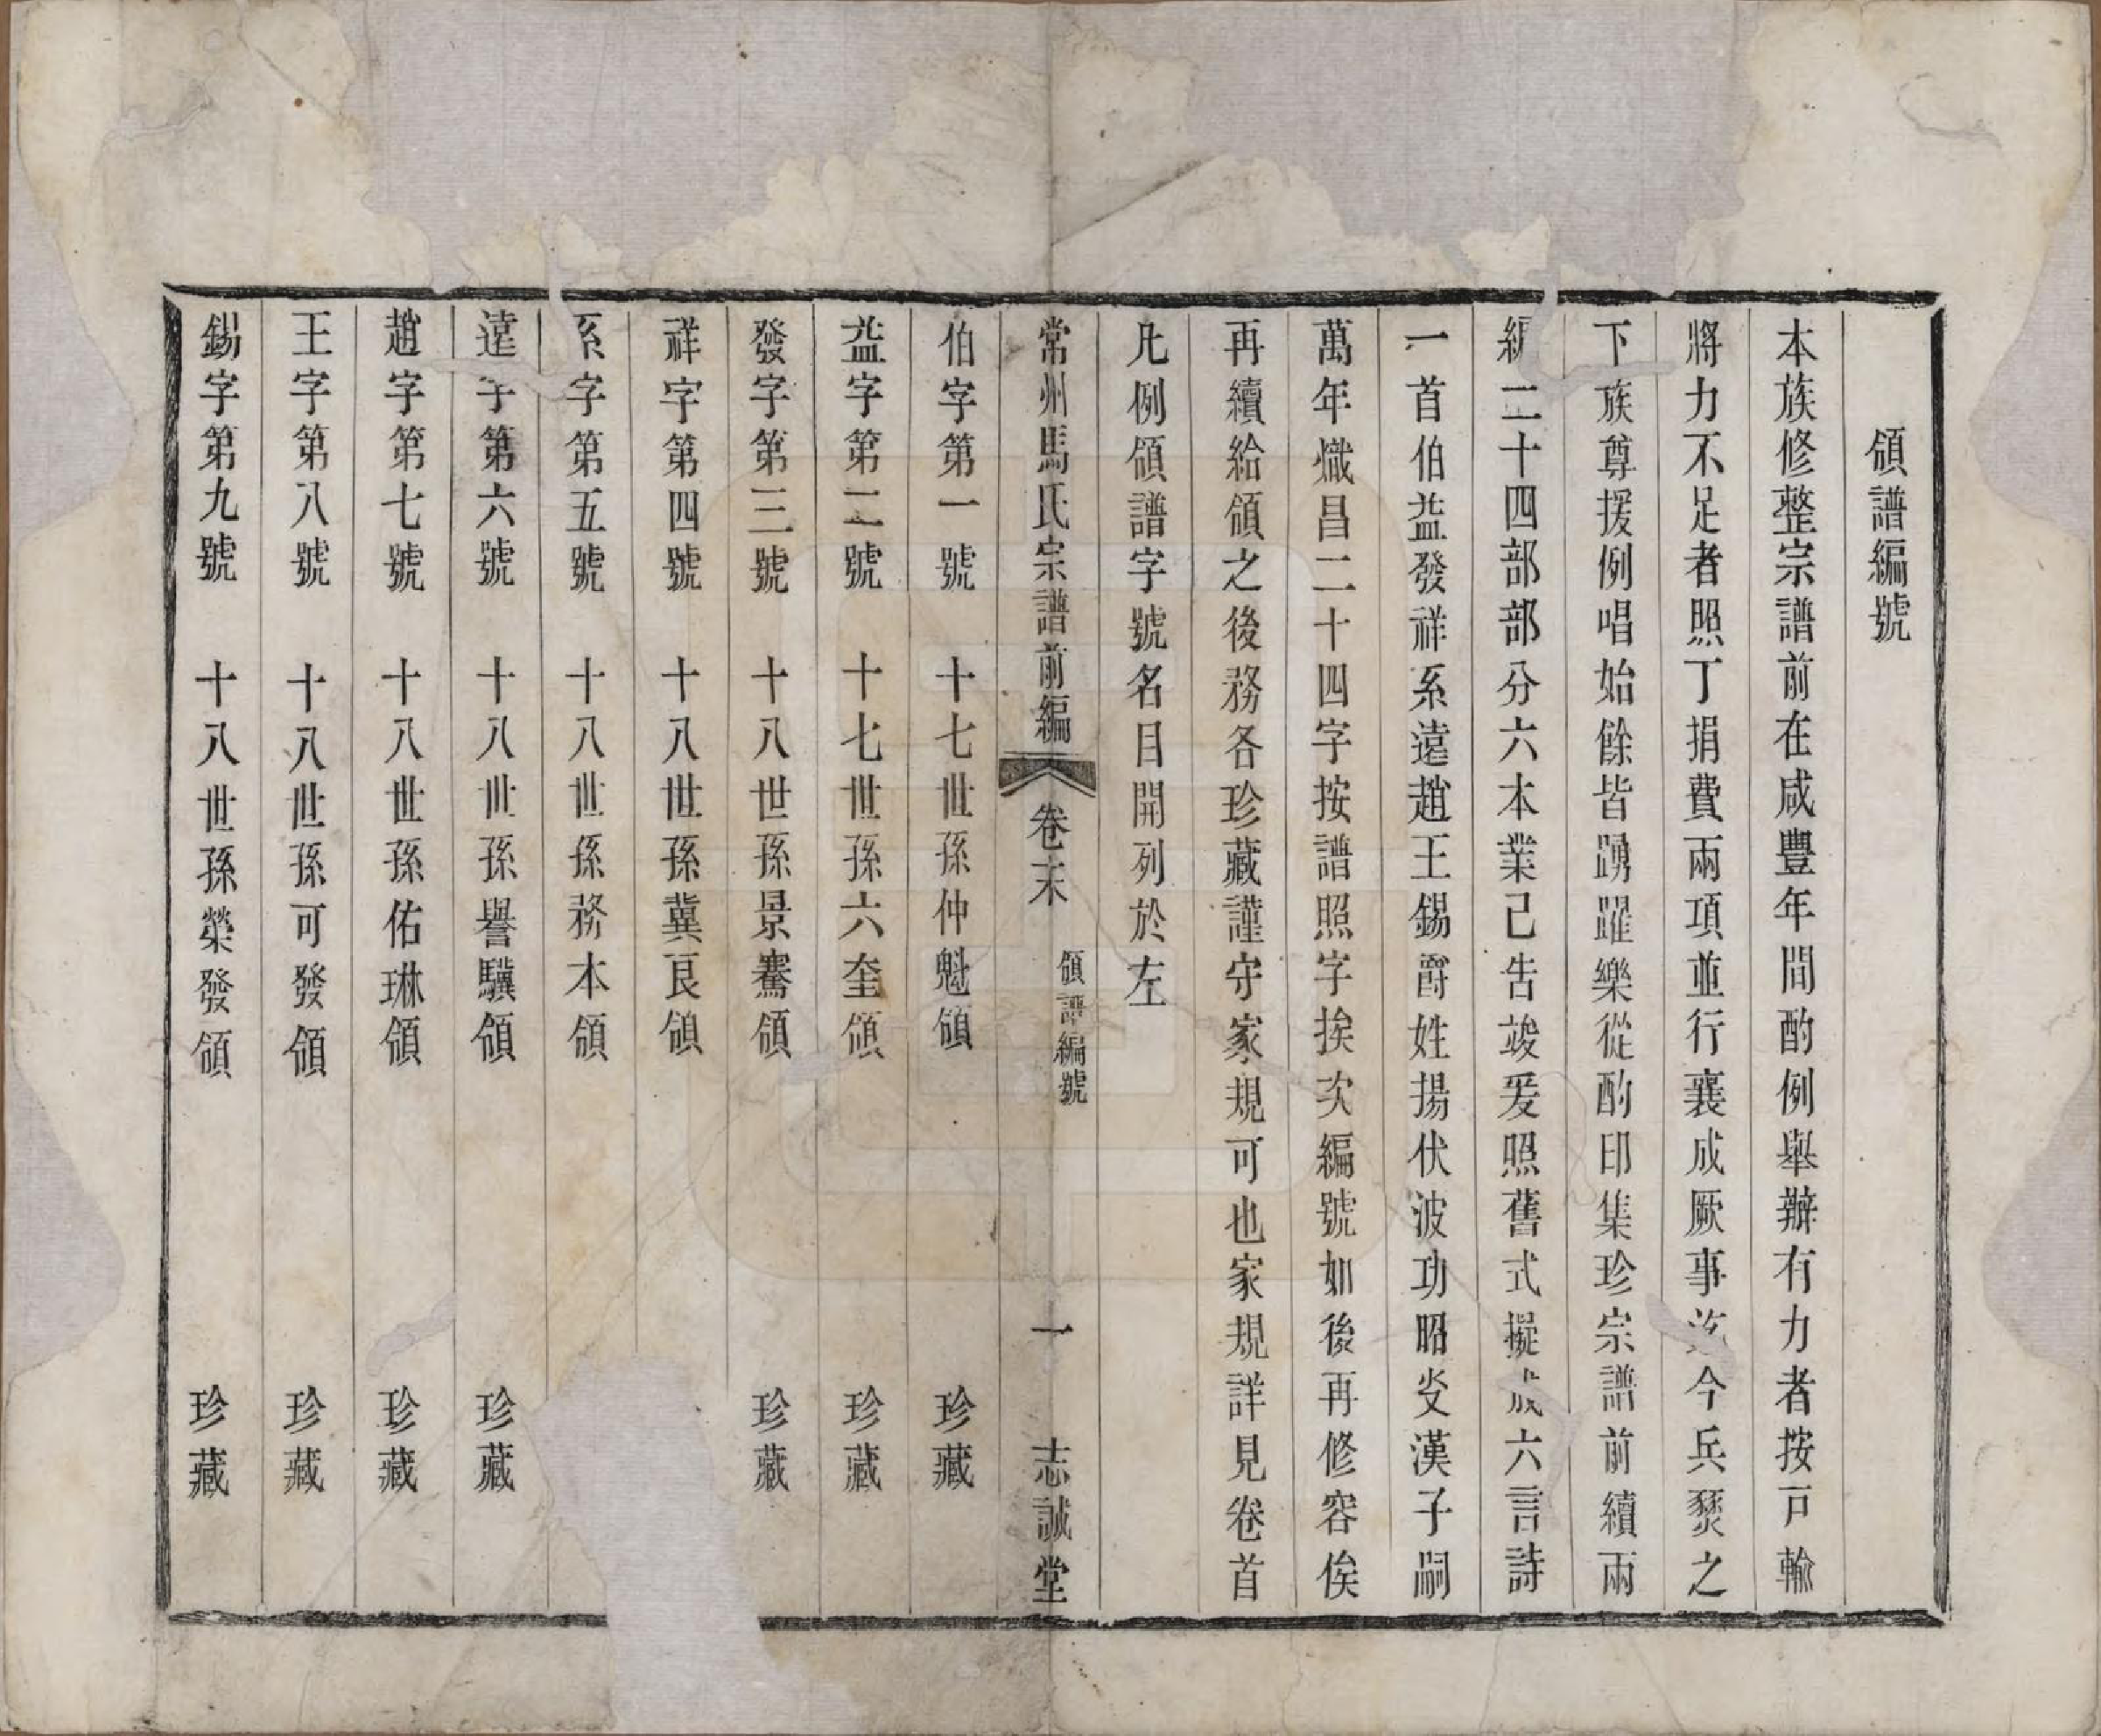 領譜編號
本族修整宗譜前在咸豐年間酌例舉辦有力者按戸輸
將力不足者照丁捐費兩項並行襄成厥事迄今兵燹之
下族尊援例唱始餘皆踴躍樂從酌印集珍宗譜前續兩
編二十四部部分六本業已告竣爰照舊式擬成六言詩
一首伯益發祥系遠趙王錫爵姓揚伏波功昭炎漢子嗣
萬年熾昌二十四字按譜照字挨次編號如後再修容俟
再續給領之後務各珍藏謹守家規可也家規詳見卷首
凡例領譜字號名目開列於左
常州馬氏宗譜前編 卷末 領譜編號 一 志誠堂
伯字第一號 十七世孫仲魁領 珍藏
益字第二號 十七世孫六奎領 珍藏
發字第三號 十八世孫景騫領 珍藏
祥字第四號 十八世孫冀良領
系字第五號 十八世孫務本領
遠字第六號 十八世孫譽驥領 珍藏
趙字第七號 十八世孫佑琳領 珍藏
王字第八號 十八世孫可發領 珍藏
錫字第九號 十八世孫榮發領 珍藏